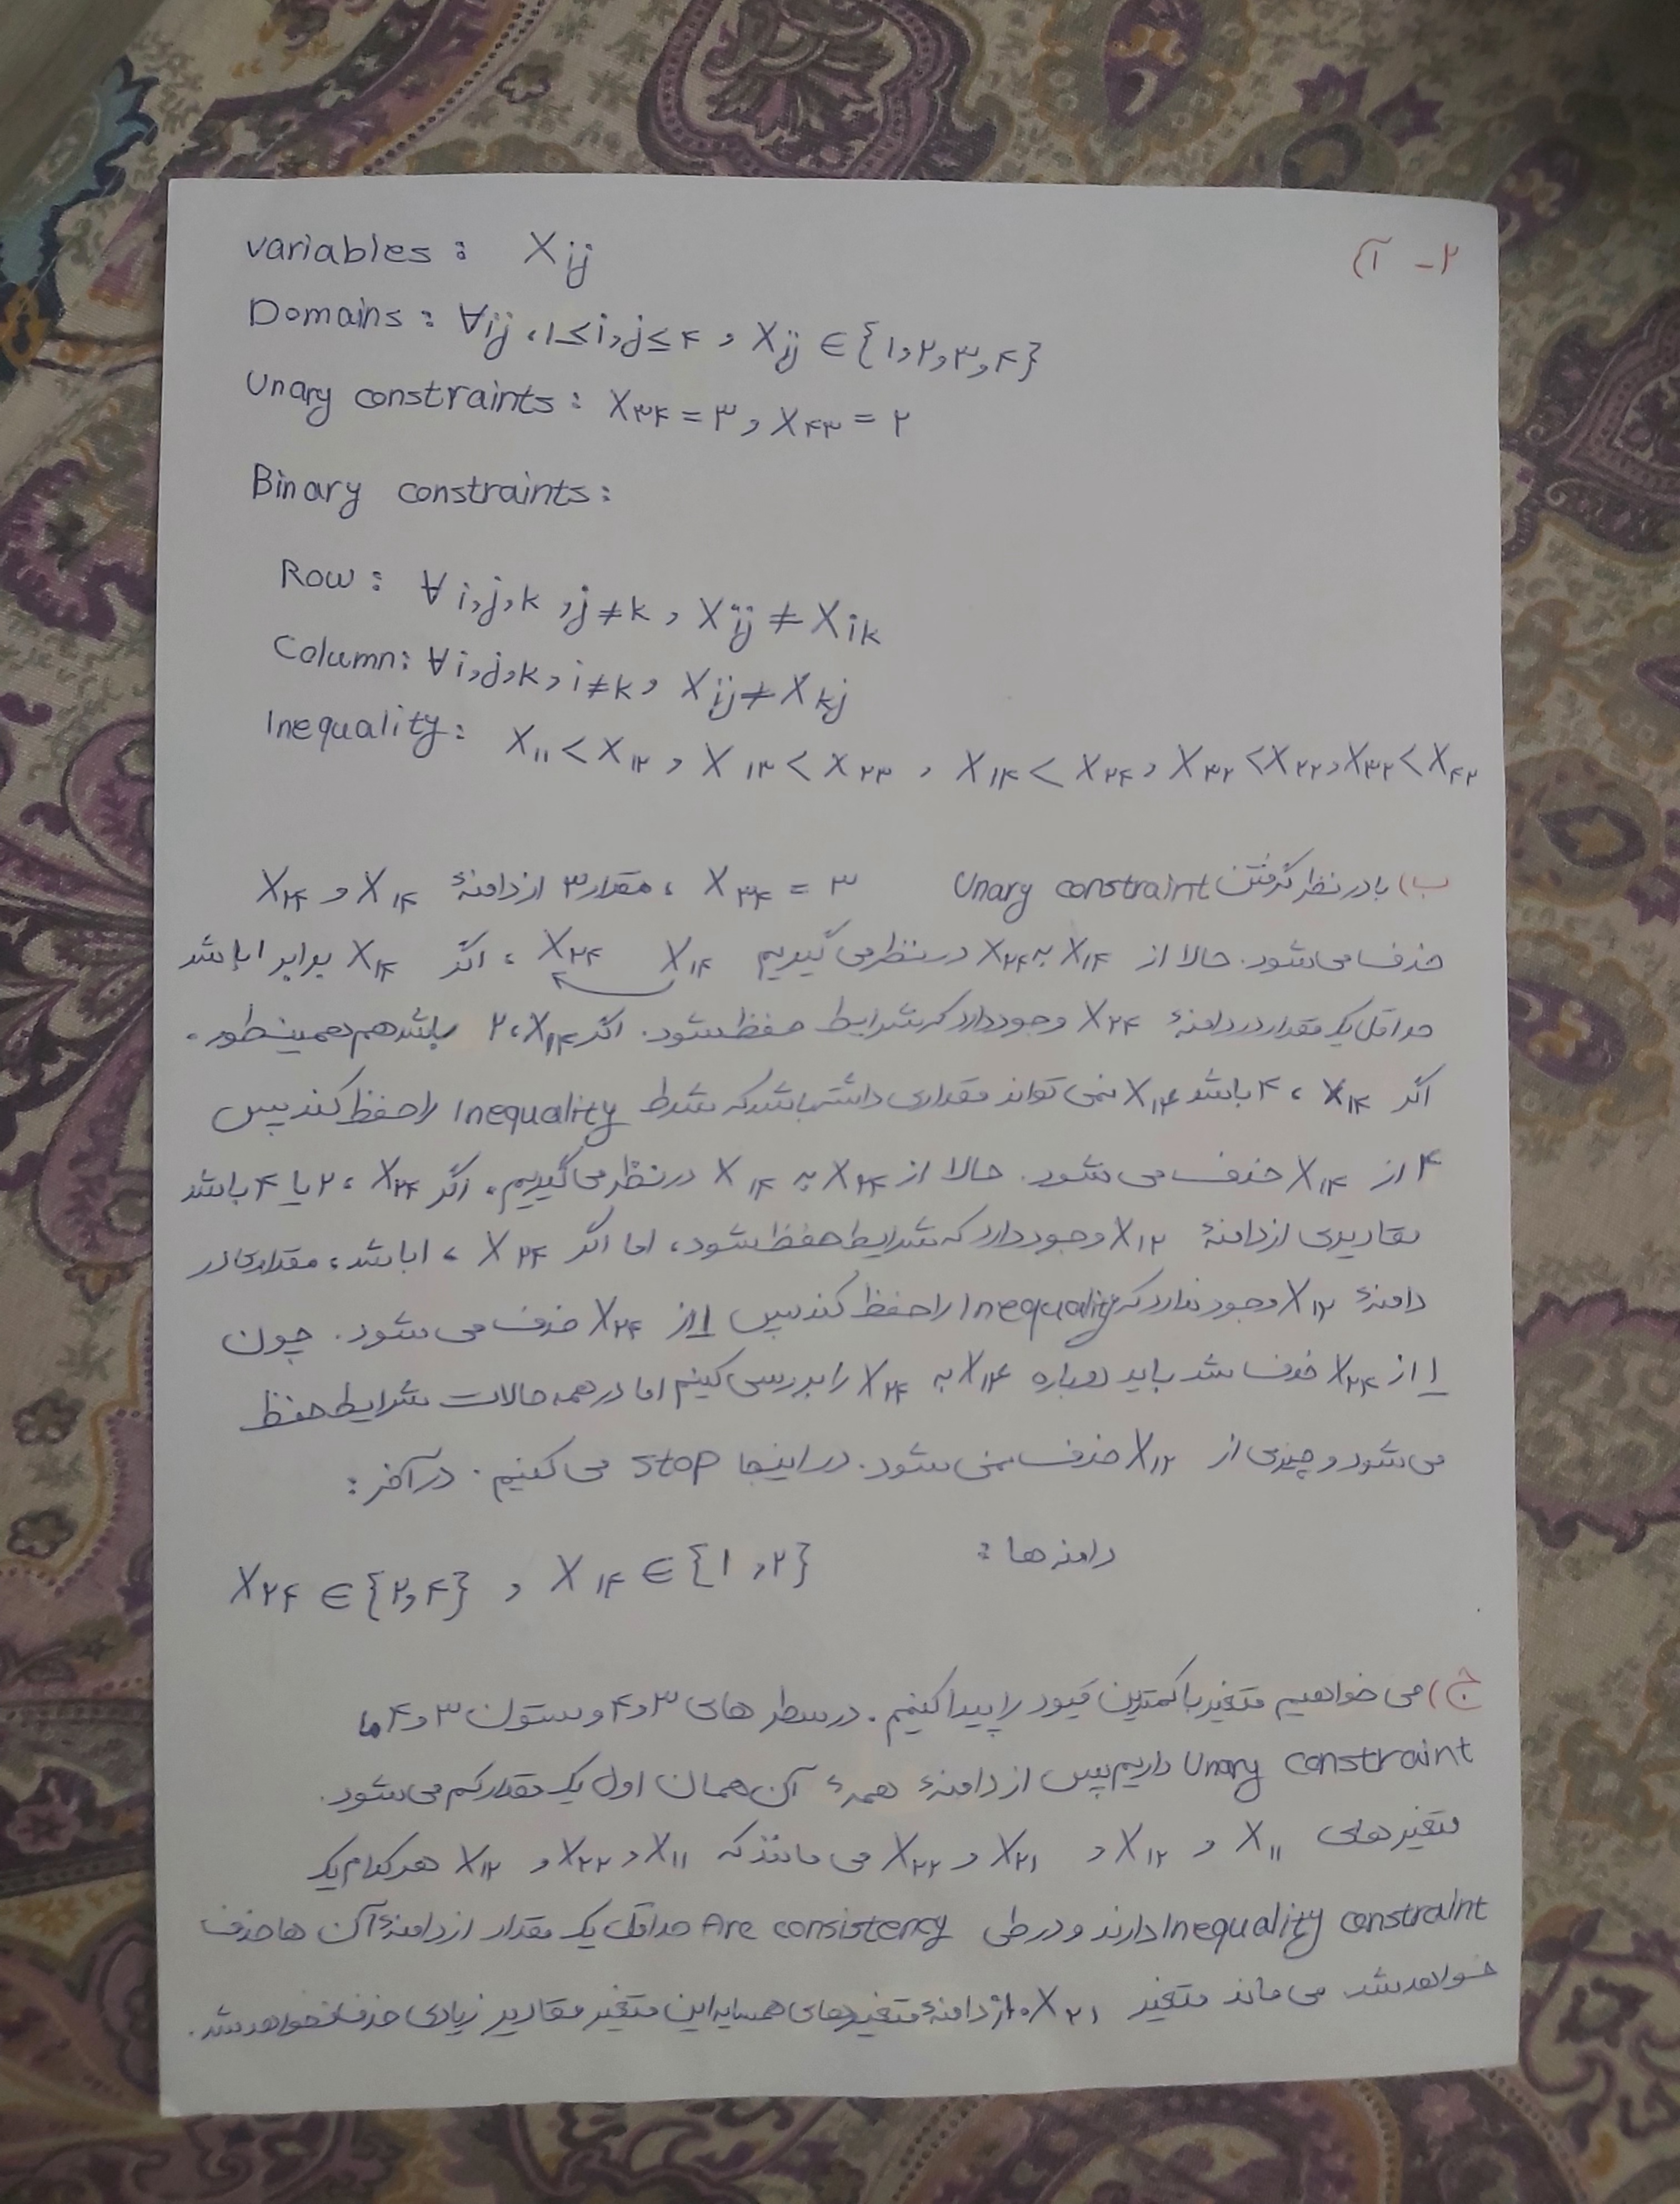 ۲- آ)
variables : Xij
Domains : ∀ij ، ۱≤i,j≤۴ , Xij ∈ {۱,۲,۳,۴}
Unary constraints : X۳۴ = ۳ , X۴۳ = ۲
Binary constraints :
Row : ∀ i,j,k , j≠k , Xij ≠ Xik
Column : ∀ i,j,k , i≠k , Xij ≠ Xkj
Inequality : X۱۱ < X۱۲ , X۱۳ < X۲۳ , X۱۴ < X۲۴ , X۳۲ < X۲۲ , X۳۲ < X۴۲
ب) با در نظر گرفتن Unary constraint X۳۴ = ۳ ، مقدار ۳ از دامنهٔ X۱۴ و X۲۴
حذف می‌شود. حالا از X۱۴ به X۲۴ در نظر می گیریم X۱۴ X۲۴ ، اگر X۱۴ برابر ۱ باشد
حداقل یک مقدار در دامنهٔ X۲۴ وجود دارد که شرایط حفظ شود. اگر X۱۴ ، ۲ باشد هم همینطور.
اگر X۱۴ ، ۴ باشد X۲۴ نمی تواند مقداری داشته باشد که شرط Inequality را حفظ کند پس
۴ از X۱۴ حذف می شود. حالا از X۲۴ به X۱۴ در نظر می گیریم. اگر X۲۴ ، ۲ یا ۴ باشد
مقادیری از دامنهٔ X۱۲ وجود دارد که شرایط حفظ شود، اما اگر X۲۴ ، ۱ باشد، مقداری در
دامنهٔ X۱۲ وجود ندارد که Inequality را حفظ کند پس ۱ از X۲۴ حذف می شود. چون
۱ از X۲۴ حذف شد باید دوباره X۱۴ به X۲۴ را بررسی کنیم اما در همه حالات شرایط حفظ
می شود و چیزی از X۱۲ حذف نمی شود. در اینجا stop می کنیم. در آخر :
دامنه ها : X۲۴ ∈ {۲,۴} , X۱۴ ∈ {۱,۲}
ج) می خواهیم متغیر با کمترین قیود را پیدا کنیم. در سطر های ۳ و ۴ و ستون ۳ و ۴ ما
Unary constraint داریم پس از دامنهٔ همهٔ آن همان اول یک مقدار کم می شود.
متغیر های X۱۱ و X۱۲ و X۲۱ و X۲۲ می مانند که X۱۱ و X۲۲ و X۱۲ هر کدام یک
Inequality constraint دارند و در طی Arc consistency حداقل یک مقدار از دامنهٔ آن ها حذف
خواهد شد. می ماند متغیر X۲۱. از دامنهٔ متغیرهای همسایه این متغیر مقادیر زیادی حذف نخواهد شد.